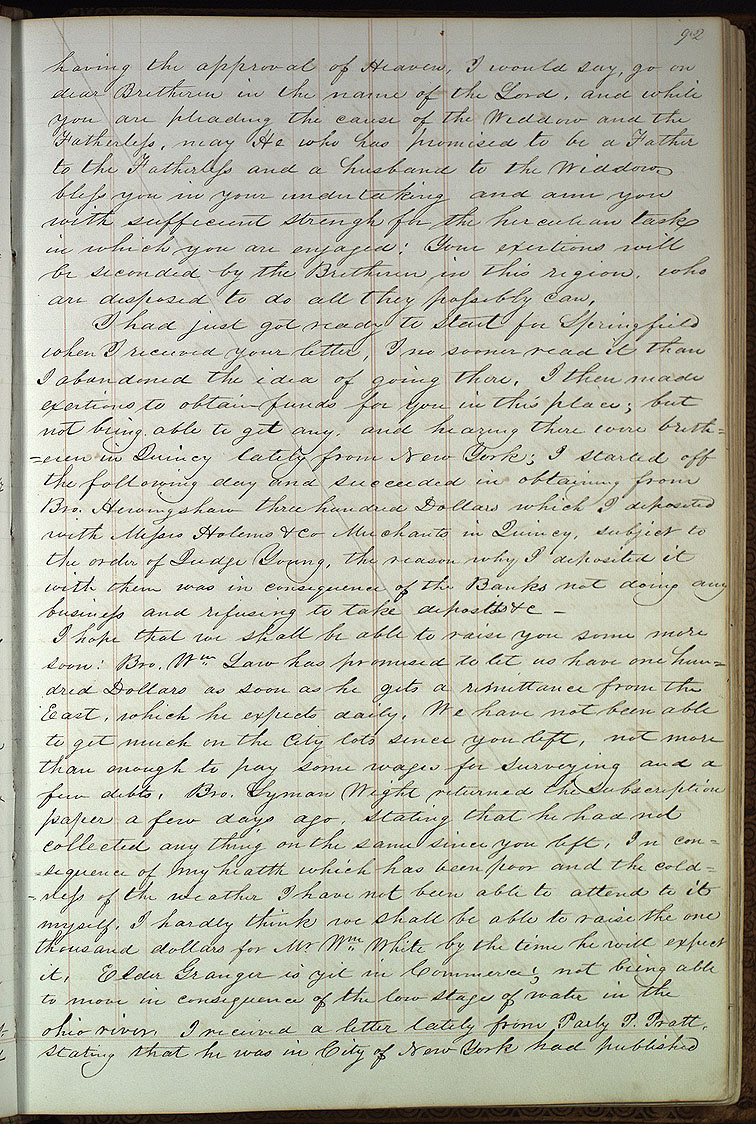 92
having the approval of Heaven, I would say, go on
dear Bretheren in the name of the Lord, and while
you are pleading the cause of the Widdow and the
Fatherless, may He who has promised to be a Father
to the Fatherless and a husband to the Widdow,
bless you in your undertaking and arm you
with sufficient strengh for the herculean task
in which you are engaged: Your exertions will
be seconded by the Bretheren in this region, who
are disposed to do all they possibly can.
I had just got ready to start for Springfield
when I received your letter, I no sooner read it than
I abandoned the idea of going there, I then made
exertions to obtain funds for you in this place; but
not being able to get any, and hearing there were breth=
=eren in Quincy lately from New York; I started off
the following day and succeeded in obtaining from
Bro. Herringshaw three hundred Dollars which I deposited
with Messrs Holems & Co Muchants in Quincy, subject to
the order of Judge Young, the reason why I deposited it
with them was in consequence of the Banks not doing any
business and refusing to take deposits &c –
I hope that we shall be able to raise you some more
soon: Bro. Wm Law has promised to let us have one hun=
dred Dollars as soon as he gets a remittance from the
East, which he expects daily, We have not been able
to get much on the City lots since you left, not more
than enough to pay some wages for surveying and a
few debts. Bro. Lyman Wight returned the subscription
paper a few days ago, stating that he had not
collected any thing on the same since you left, In con=
=sequence of my health which has been poor and the cold=
=ness of the weather I have not been able to attend to it
myself, I hardly think we shall be able to raise the one
thousand dollars for Mr Wm White by the time he will expect
it, Elder Granger is yit in Commerce; not being able
to move in consequence of the low stage of water in the
ohio river, I received a letter lately from Parly P. Pratt,
stating that he was in City of New York had published